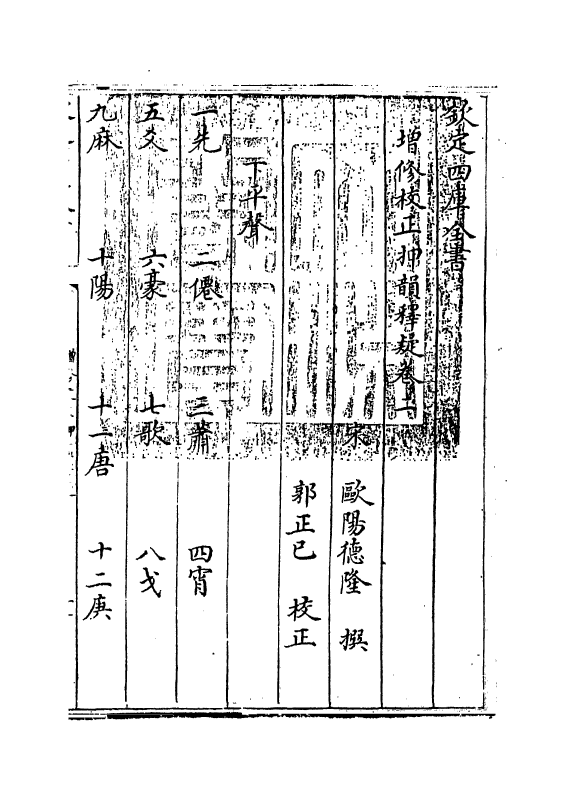 欽定四庫全書
增修校正押韻釋疑卷
宋 歐陽德隆 撰
郭正已 校正
下平聲
一先 二僊 三蕭 四宵
五爻 六豪 七歌 八戈
九麻 十陽 十一唐 十二庚